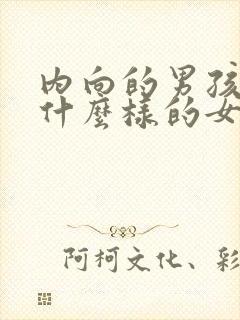 内向的男孩
什麼樣的女
阿柯文化、彩